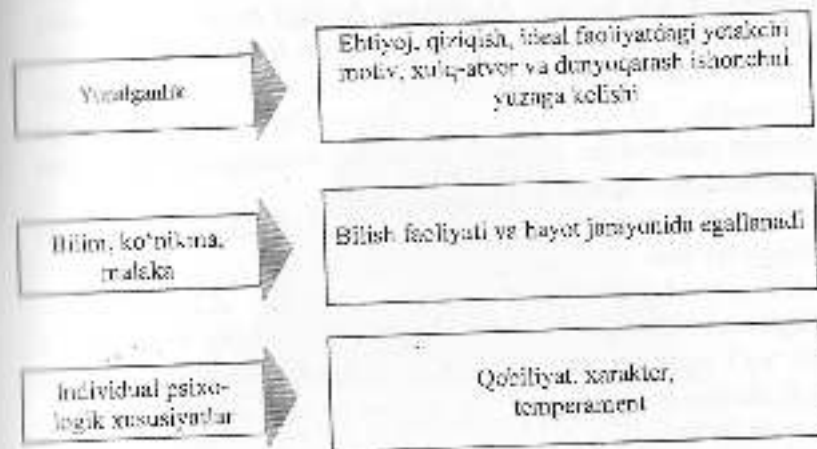 Yo'nalganlik
Ehtiyoj, qiziqish, ideal faoliyatdagi yetakchi
motiv, xulq-atvor va dunyoqarash ishonchni
yuzaga kelishi
Bilim, ko'nikma,
malaka
Bilish faoliyati va hayot jarayonida egallanadi
Individual psixo-
logik xususiyatlar
Qobiliyat, xarakter,
temperament